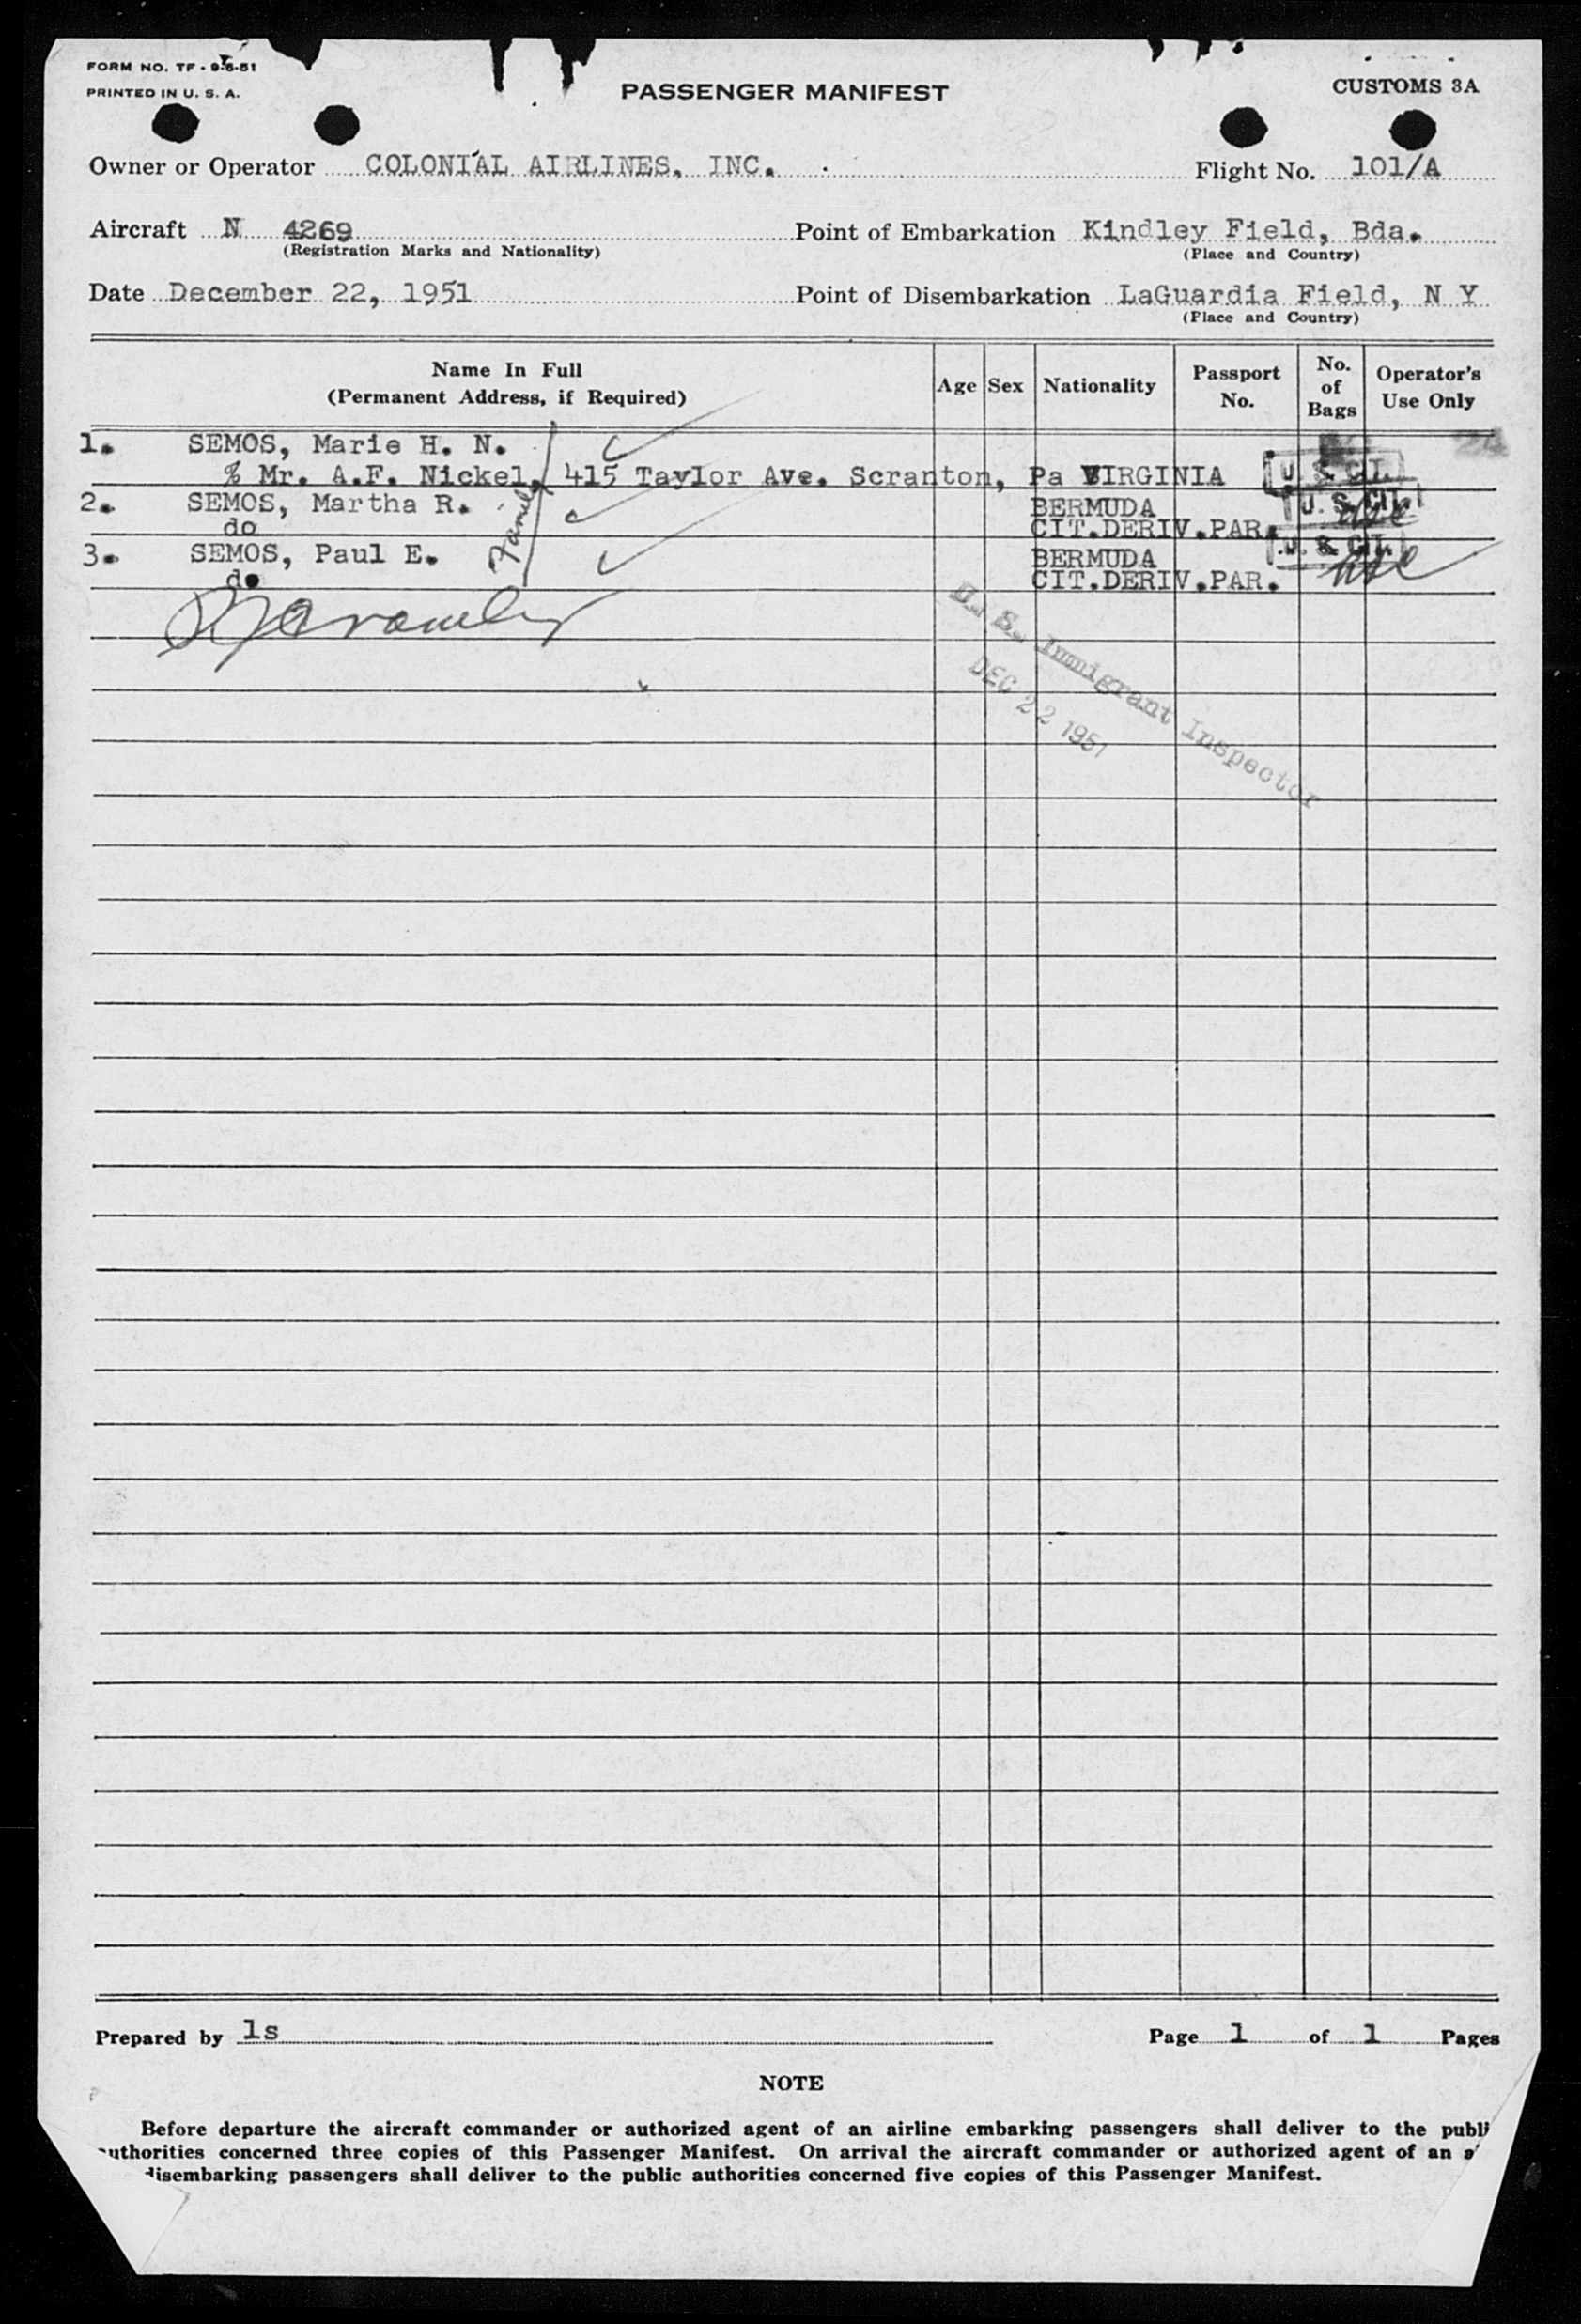 FORM NO. TF - 9-6-51
PRINTED IN U. S. A.
PASSENGER MANIFEST
CUSTOMS 3A
Owner or Operator COLONIAL AIRLINES, INC.
Flight No. 101/A
Aircraft N 4269
(Registration Marks and Nationality)
Point of Embarkation Kindley Field, Bda.
(Place and Country)
Date December 22, 1951
Point of Disembarkation LaGuardia Field, N Y
(Place and Country)
Name In Full
(Permanent Address, if Required)
Age
Sex
Nationality
Passport
No.
No.
of
Bags
Operator's
Use Only
1. SEMOS, Marie H. N.
% Mr. A.F. Nickel, 415 Taylor Ave. Scranton, Pa VIRGINIA
U. S. CIT.
2. SEMOS, Martha R. BERMUDA
U. S. CIT.
do CIT.DERIV.PAR.
3. SEMOS, Paul E. BERMUDA
U. S. CIT.
do CIT.DERIV.PAR.
Family
U. S. Immigrant Inspector
DEC 22 1951
Prepared by ls
Page 1 of 1 Pages
NOTE
Before departure the aircraft commander or authorized agent of an airline embarking passengers shall deliver to the publi
uthorities concerned three copies of this Passenger Manifest. On arrival the aircraft commander or authorized agent of an a
disembarking passengers shall deliver to the public authorities concerned five copies of this Passenger Manifest.